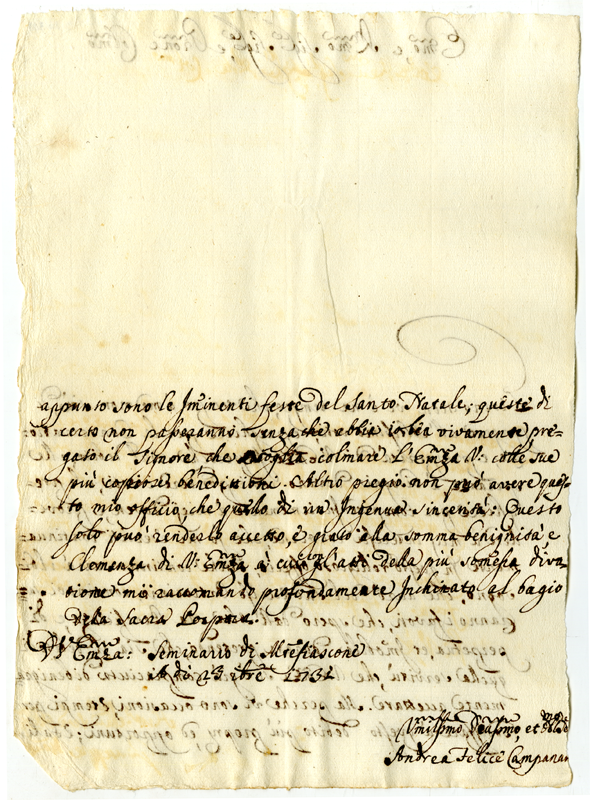 appunto sono le Iminenti feste del Santo Natale; queste di
certo non passeranno, senza che abbia io bea vivamente pre-
gato il Signore che voglia colmare l'Emza V: colle sue
più copiose benedittioni. Altro pregio non può avere ques-
to mio officio, che quello di un Ingenua sincerità: Questo
solo può renderlo accetto, e grato alla somma benignità e
Clemenza di V: Emza à cui con atti della più somessa divo-
tione mi raccomando profondamente Inchinato al bagio
Della Sacra Porpora.
Di V Emza: Seminario di Mtefiascone
li 23 Xbre 1731
Umilissmo Devmo, et Obblmo
Andrea Felice Campanari